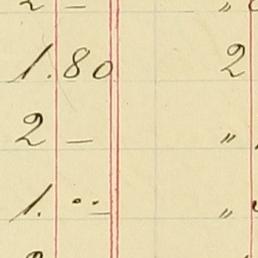 2 — "
1.80 2
2 — "
1. .. "